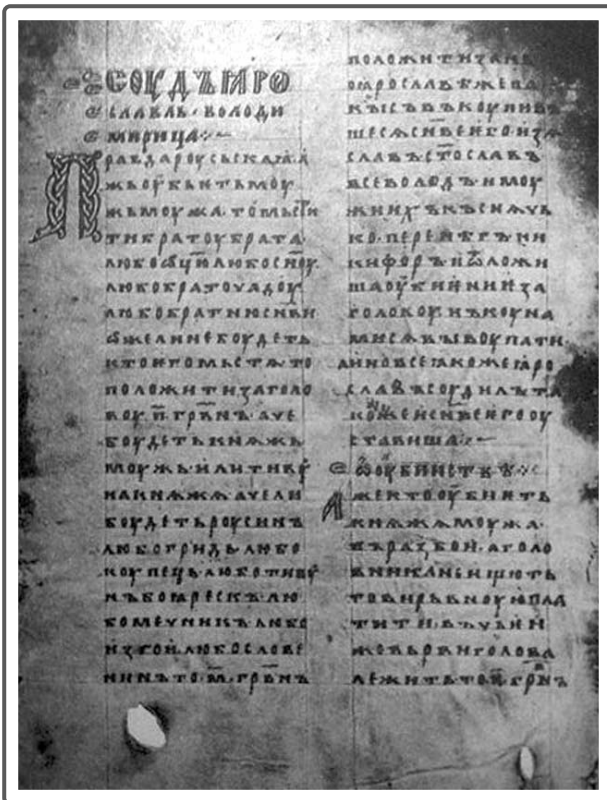 СОУДЪ ꙖРО
СЛАВЛЬ· ВОЛОДИ
МИРИЦА:·~
Правда роусьскаꙗ· а
жь оубьѥть моу
жь моужа· то мьсти
ти братоу брата·
любо ѿцю любо сн҃оу
любо братоучадоу
любо братню сн҃ви
ѡже ли не боудеть
кто ѥго мьстѧ· то
положити за голо
воу· п҃· грв҃нъ· аче
боудеть кнѧжь
моужь· или тивоу
на кнѧжа· аче ли
боудеть роусинъ
любо гридь· любо
коупець· любо тивоу
нъ боꙗрескъ· лю
бо мечникъ· любо
изгои· любо слове
нинъ· то· м҃· грв҃нъ
положити за нь·
по ꙗрославѣ же па
кы съвъкоупивъ
шесѧ сн҃ве ѥго· изѧ
славъ· ст҃ославъ
всеволодъ· и моу
жи ихъ· къснѧчь
ко· перенѣгъ· ни
кифоръ· и ѿложи
ша оубиѥниѥ за
головоу· нъ коуна
ми сѧ выкоупати·
а ино все ꙗкоже ꙗро
славъ соудилъ· та
коже и сн҃ве ѥго оу
ставиша:·~
ѡ оубииствѣ:·
Аже кто оубиѥть
кнѧжа моужа·
въ разбои· а голо
вника не ищють
то вирьвноую пла
тити· въ чьѥи
же вьрви голова
лежить· то п҃ грв҃нъ